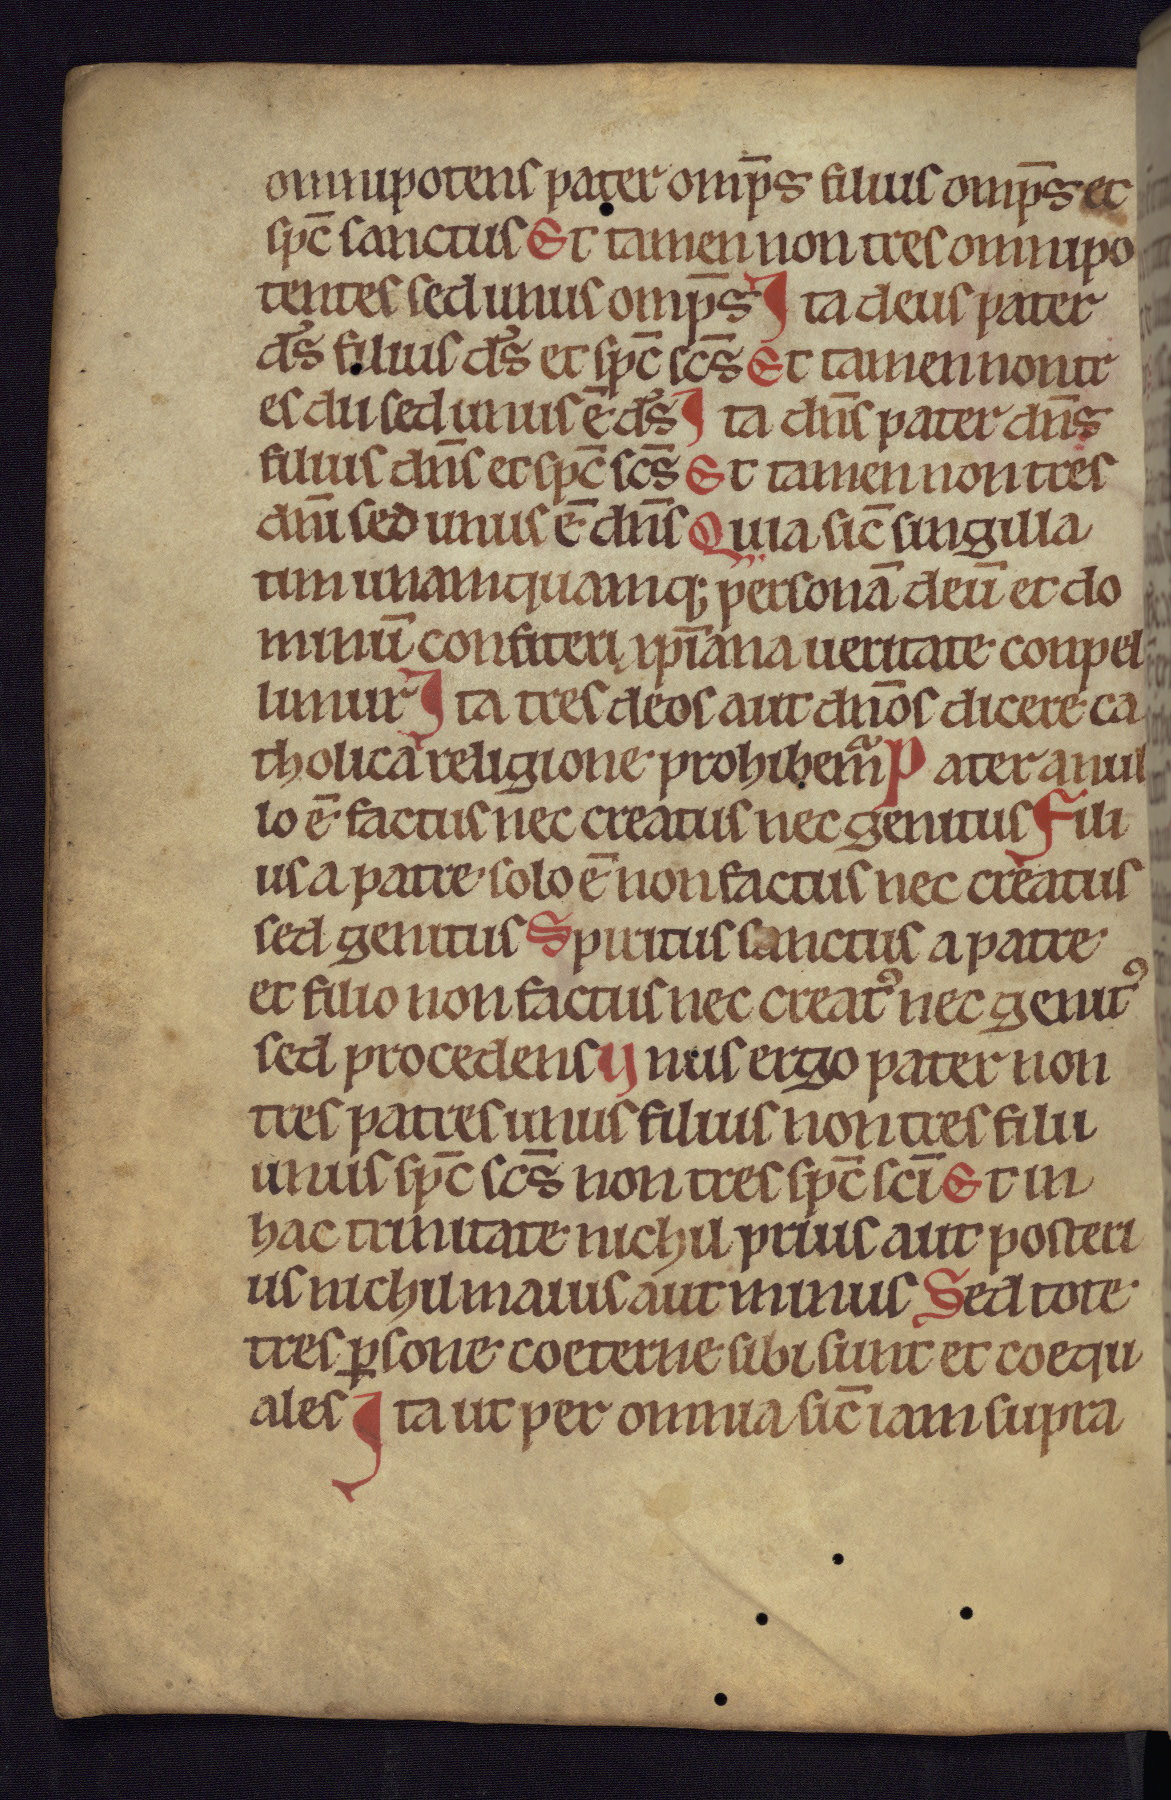 omnipotens pater omp̄s filius omp̄s et
sp̄c sanctus Et tamen non tres omnipo
tentes sed unus omp̄s Ita deus pater
d̄s filius d̄s et sp̄c sc̄s Et tamen non tr
es dii sed unus ē d̄s Ita dn̄s pater dn̄s
filius dn̄s et sp̄c sc̄s Et tamen non tres
dn̄i sed unus ē dn̄s Quia sic̄ singilla
tim unamquamq; personā deū et do
minū confiteri xp̄iana ueritate conpel
limur Ita tres deos aut dn̄os dicere ca
tholica religione prohibem̄ Pater a nul
lo ē factus nec creatus nec genitus Fili
us a patre solo ē non factus nec creatus
sed genitus Spiritus sanctus a patre
et filio non factus nec creatꝰ nec genitꝰ
sed procedens Unus ergo pater non
tres patres unus filius non tres filii
unus sp̄c sc̄s non tres sp̄c sc̄i Et in
hac trinitate nichil prius aut posteri
us nichil maius aut minus Sed tote
tres ꝑsone coeterne sibi sunt et coequ
ales Ita ut per omnia sic̄ iam supra